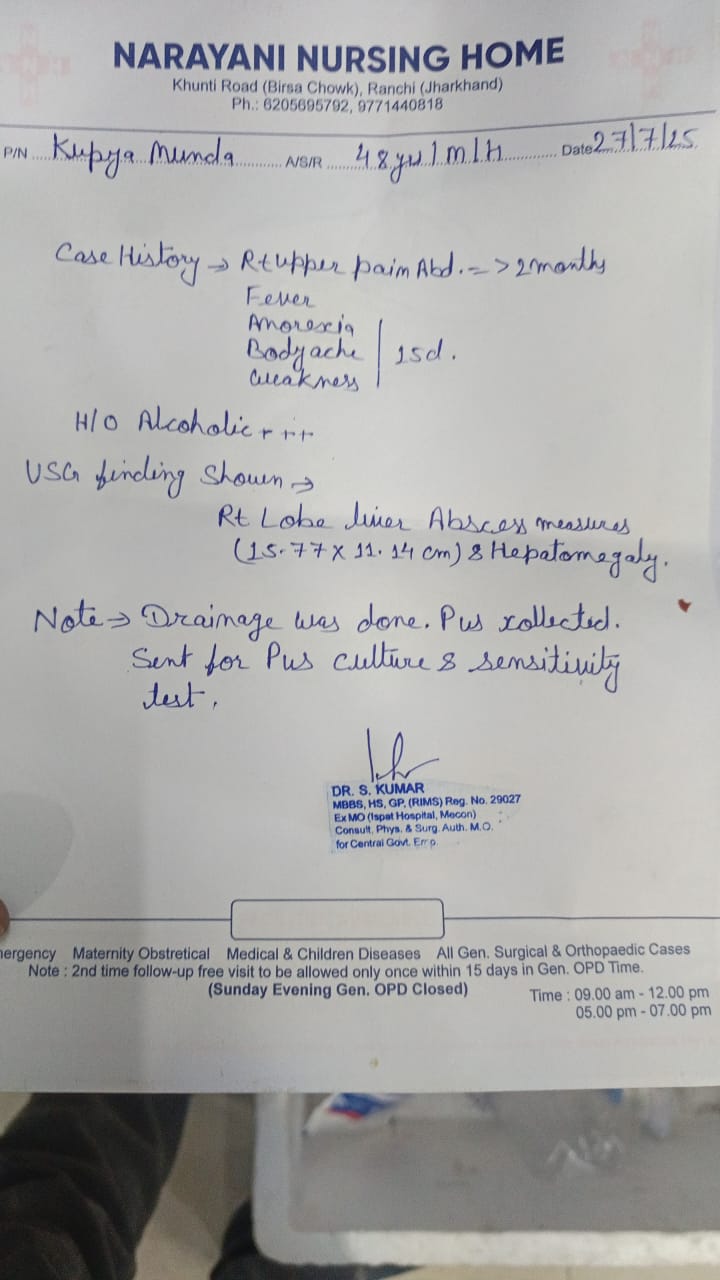 NARAYANI NURSING HOME
Khunti Road (Birsa Chowk), Ranchi (Jharkhand)
Ph.: 6205695792, 9771440818
P/N Kupya Munda A/S/R 48 yrs / m / H Date 27/7/25
Case History → Rt upper pain Abd. => 2 months
Fever
Anorexia
Bodyache 15d.
Weakness
H/O Alcoholic + ++
USG finding Shown →
Rt Lobe liver Abscess measures
(15.77 x 11.14 cm) & Hepatomegaly.
Note → Drainage was done. Pus collected.
Sent for Pus culture & sensitivity
test.
DR. S. KUMAR
MBBS, HS, GP, (RIMS) Reg. No. 29027
Ex MO (Ispat Hospital, Mecon)
Consult. Phys. & Surg. Auth. M.O.
for Central Govt. Emp.
mergency Maternity Obstretical Medical & Children Diseases All Gen. Surgical & Orthopaedic Cases
Note : 2nd time follow-up free visit to be allowed only once within 15 days in Gen. OPD Time.
(Sunday Evening Gen. OPD Closed)
Time : 09.00 am - 12.00 pm
05.00 pm - 07.00 pm